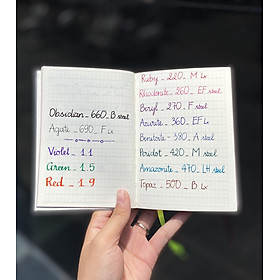 Obsidian _ 660 _ B steel
Agate _ 690 _ F Lx
Violet _ 1.1
Green _ 1.5
Red _ 1.9
Ruby _ 220 _ M Lx
Rhodonite _ 260 _ EF steel
Beryl _ 270 _ F steel
Azurite _ 360 _ EF Lx
Benitoite _ 380 _ A steel
Peridot _ 420 _ M steel
Amazonite _ 470 _ LH steel
Topaz _ 500 _ B Lx